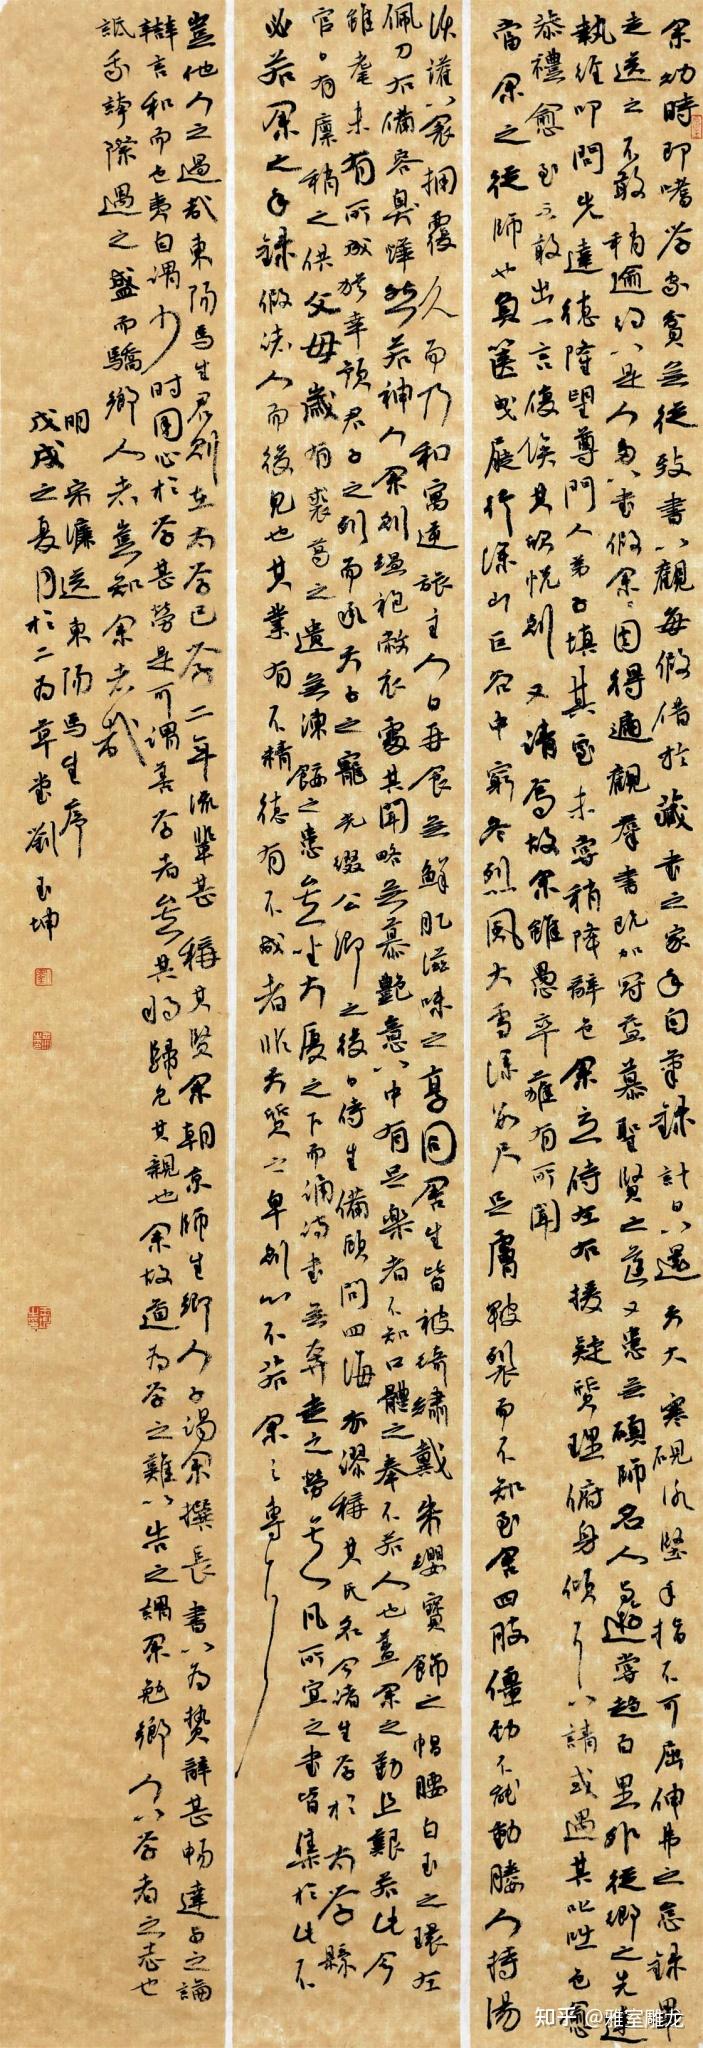 余幼時即嗜學家貧無從致書以觀每假借於藏書之家手自筆錄計日以還天大寒硯冰堅手指不可屈伸弗之怠錄畢
走送之不敢稍逾約以是人多以書假余余因得遍觀群書既加冠益慕聖賢之道又患無碩師名人與遊嘗趨百里外從鄉之先達
執經叩問先達德隆望尊門人弟子填其室未嘗稍降辭色余立侍左右援疑質理俯身傾耳以請或遇其叱咄色愈
恭禮愈至不敢出一言復俟其欣悅則又請焉故余雖愚卒獲有所聞
當余之從師也負篋曳屣行深山巨谷中窮冬烈風大雪深數尺足膚皸裂而不知至舍四肢僵勁不能動媵人持湯
沃灌以衾擁覆久而乃和寓逆旅主人日再食無鮮肥滋味之享同舍生皆被綺繡戴朱纓寶飾之帽腰白玉之環左
佩刀右備容臭燁然若神人余則縕袍敝衣處其間略無慕艷意以中有足樂者不知口體之奉不若人也蓋余之勤且艱若此今
雖耄未有所成猶幸預君子之列而承天子之寵光綴公卿之後日侍坐備顧問四海亦謬稱其氏名今諸生學於太學縣
官日有廩稍之供父母歲有裘葛之遺無凍餒之患矣坐大廈之下而誦詩書無奔走之勞矣凡所宜之書皆集於此不
必若余之手錄假諸人而後見也其業有不精德有不成者非天質之卑則心不若余之專耳
豈他人之過哉東陽馬生君則在太學已學二年流輩甚稱其賢余朝京師生鄉人子謁余撰長書以為贄辭甚暢達與之論
辯言和而色夷自謂少時用心於學甚勞是可謂善學者矣其將歸見其親也余故道為學之難以告之謂余勉鄉人以學者之志也
詆我誇際遇之盛而驕鄉人者豈知余者哉
明宋濂送東陽馬生序
戊戌之夏月於二為草堂劉玉坤
知乎 @雅室雕龙